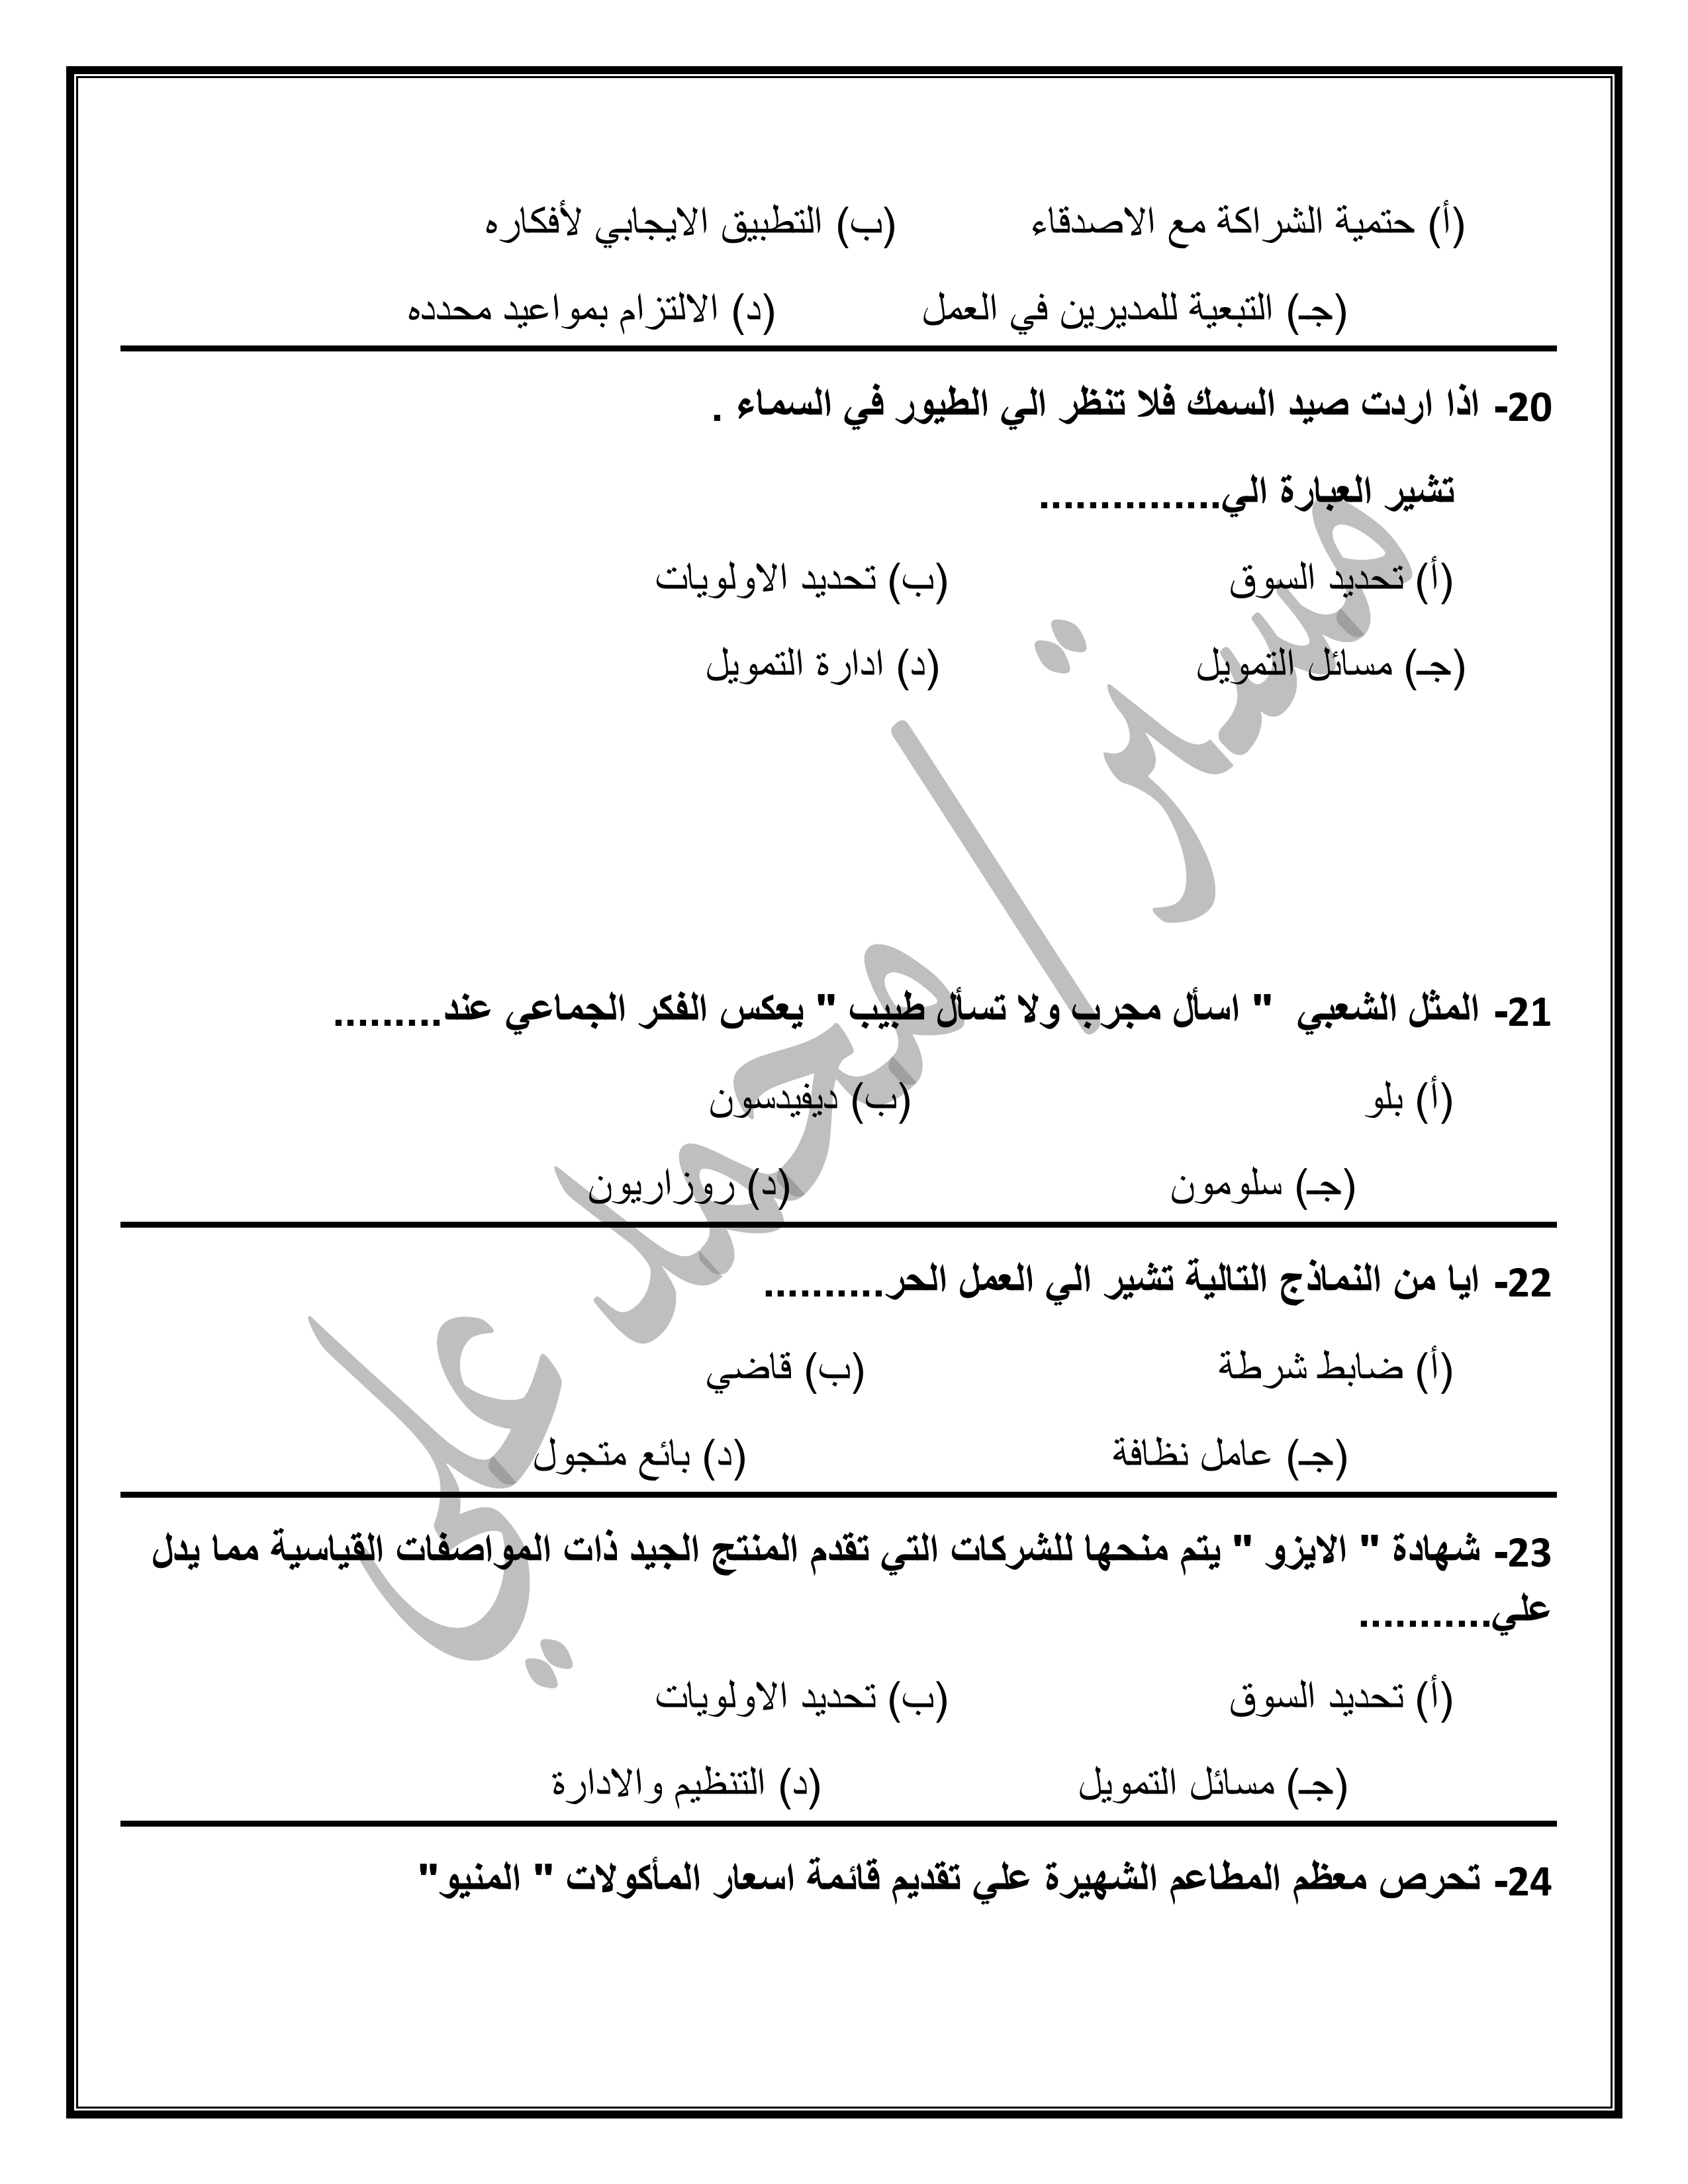 (أ) حتمية الشراكة مع الاصدقاء (ب) التطبيق الايجابي لأفكاره
(جـ) التبعية للمديرين في العمل (د) الالتزام بمواعيد محدده
20- اذا اردت صيد السمك فلا تنظر الي الطيور في السماء .
تشير العبارة الي...............
(أ) تحديد السوق (ب) تحديد الاولويات
(جـ) مسائل التمويل (د) ادارة التمويل
21- المثل الشعبي " اسأل مجرب ولا تسأل طبيب " يعكس الفكر الجماعي عند.........
(أ) بلو (ب) ديفيدسون
(جـ) سلومون (د) روزاريون
22- ايا من النماذج التالية تشير الي العمل الحر..........
(أ) ضابط شرطة (ب) قاضي
(جـ) عامل نظافة (د) بائع متجول
23- شهادة " الايزو " يتم منحها للشركات التي تقدم المنتج الجيد ذات المواصفات القياسية مما يدل
علي...........
(أ) تحديد السوق (ب) تحديد الاولويات
(جـ) مسائل التمويل (د) التنظيم والادارة
24- تحرص معظم المطاعم الشهيرة علي تقديم قائمة اسعار المأكولات " المنيو"
مستر/محمد علي